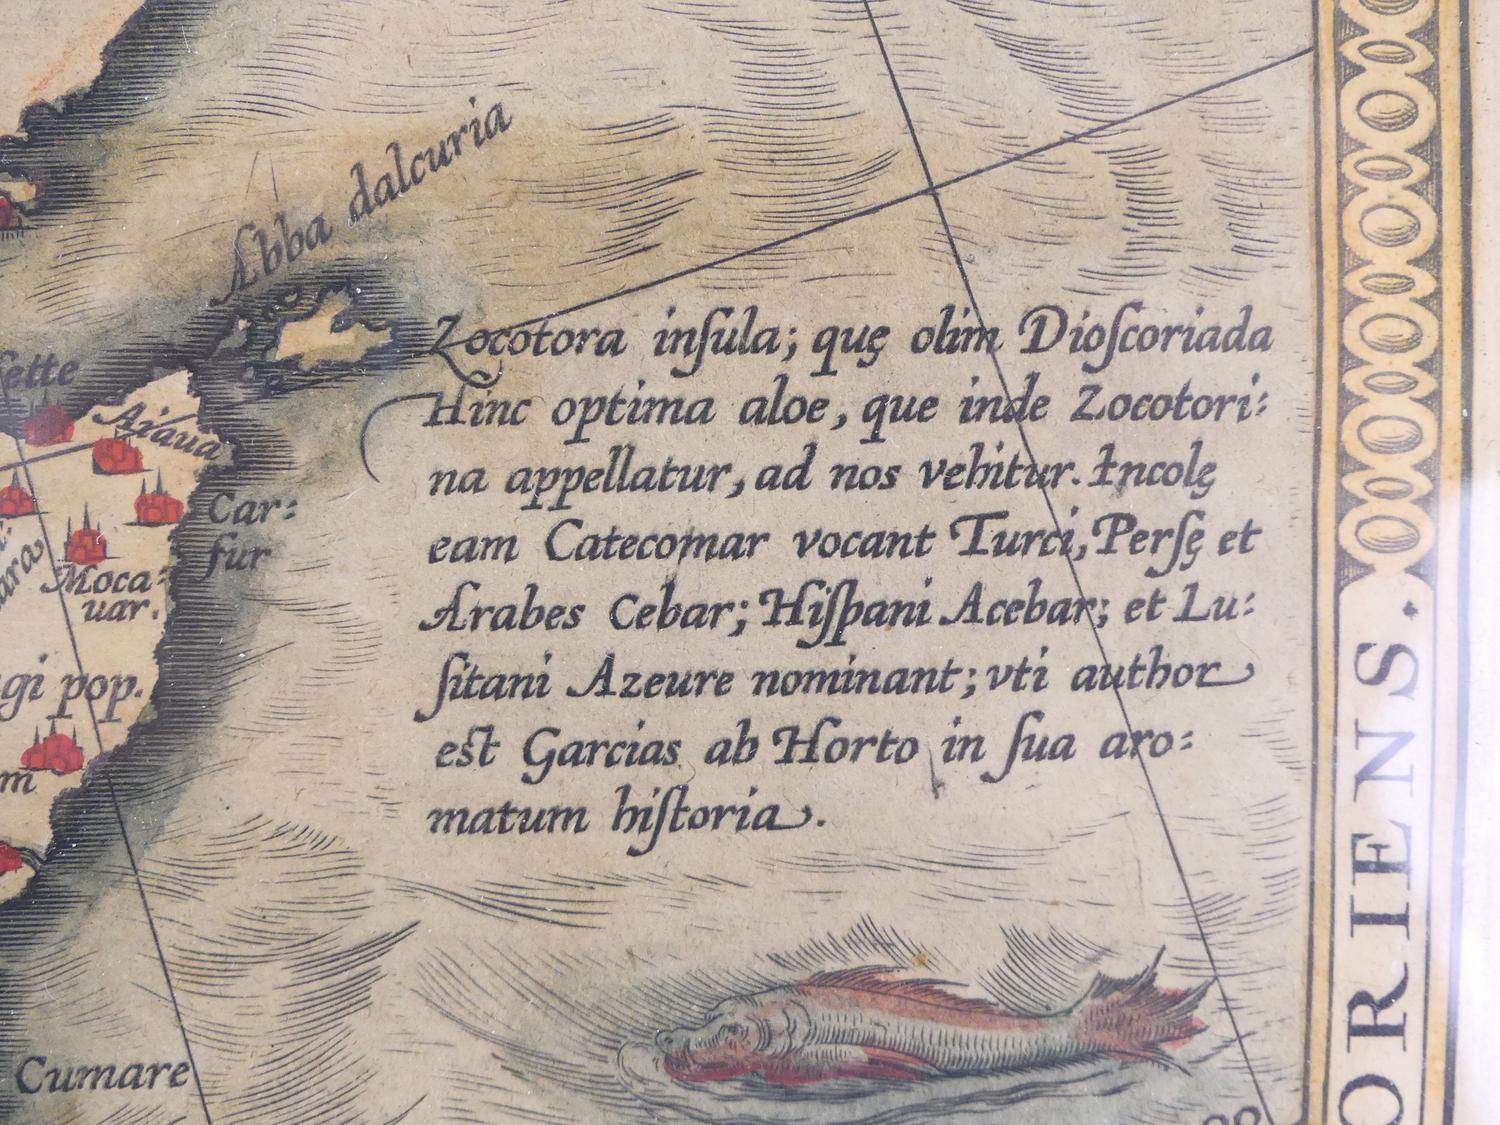 Abba dalcuria
Zocotora inſula; quę olim Dioſcoriada
Hinc optima aloe, que inde Zocotori:
na appellatur, ad nos vehitur. Incolę
eam Catecomar vocant Turci, Perſę et
Arabes Cebar; Hiſpani Acebar; et Lu:
ſitani Azeure nominant; vti author
est Garcias ab Horto in ſua aro:
matum hiſtoria.
ſette
Axaua
Car:
fur
Moca:
uar.
gi pop.
m
Cumare
ORIENS.